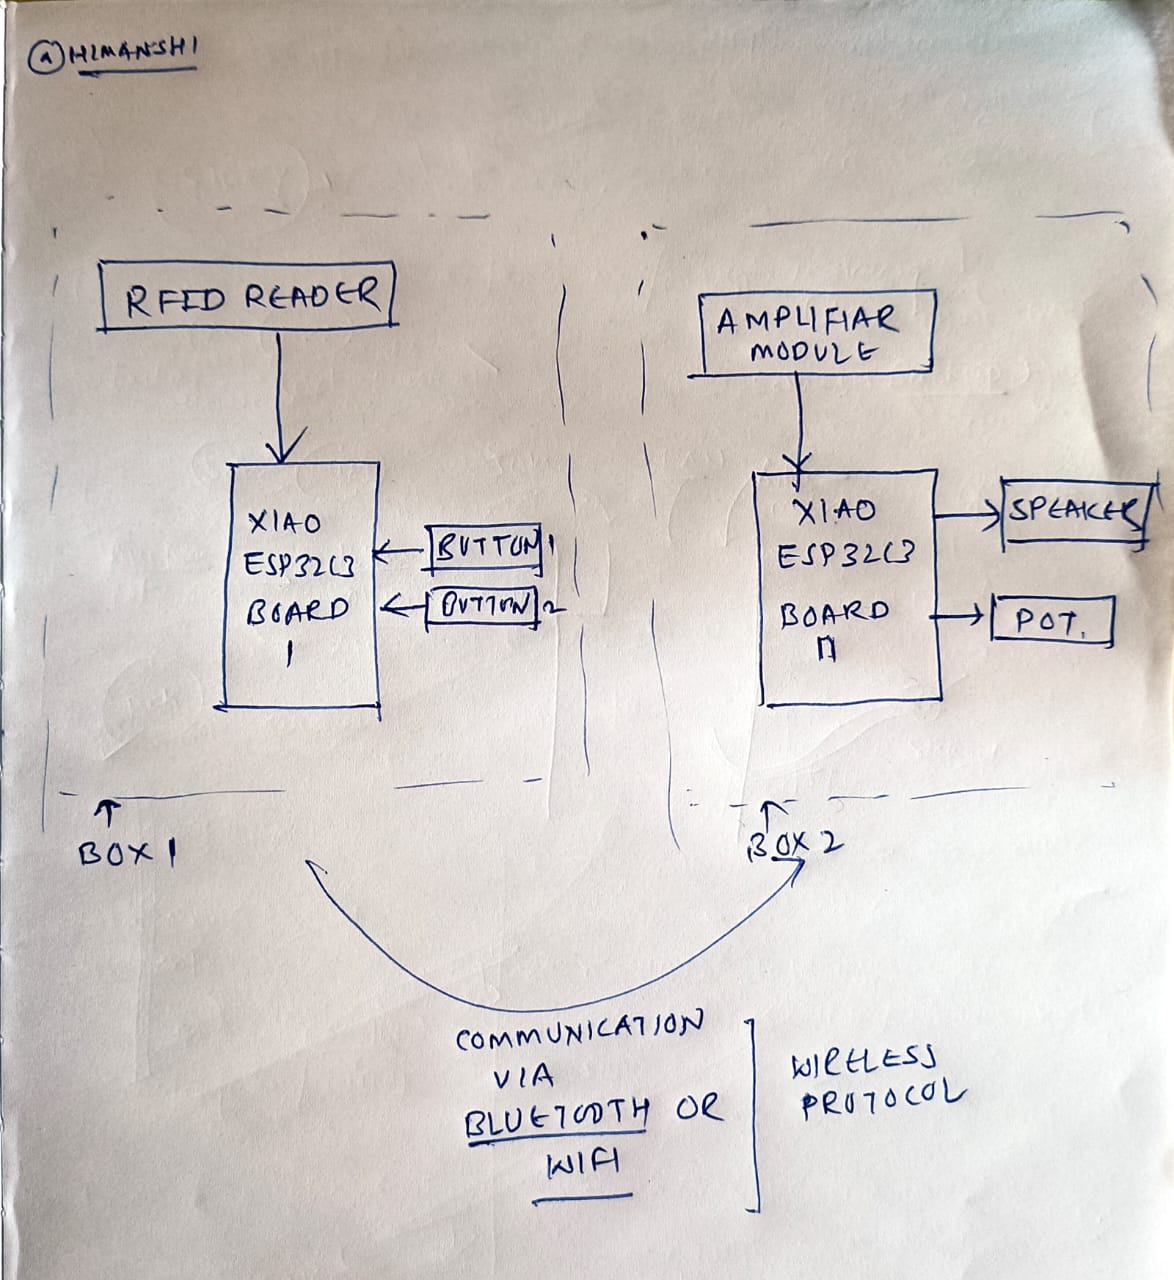 @HIMANSHI
RFID READER
XIAO
ESP32C3
BOARD
1
BUTTON 1
BUTTON 2
BOX 1
AMPLIFIAR
MODULE
XIAO
ESP32C3
BOARD
SPEAKER
POT.
BOX 2
COMMUNICATION
VIA
BLUETOOTH OR
WIFI
WIRELESS
PROTOCOL